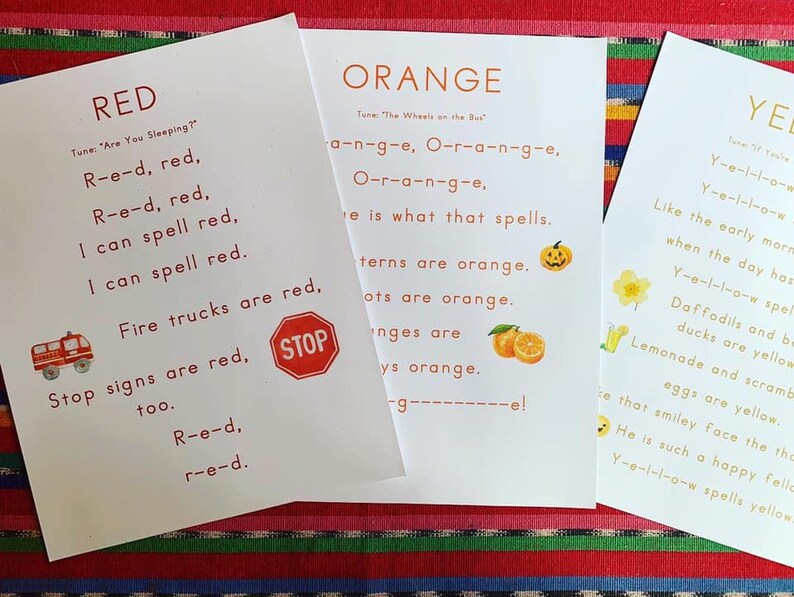 RED
Tune: "Are You Sleeping?"
R-e-d, red,
R-e-d, red,
I can spell red,
I can spell red.
Fire trucks are red,
STOP
Stop signs are red,
too.
R-e-d,
r-e-d.
ORANGE
Tune: "The Wheels on the Bus"
-a-n-g-e, O-r-a-n-g-e,
O-r-a-n-g-e,
is what that spells.
are orange.
are orange.
are
orange.
-g---------e!
Tune: "If You're
Y-e-l-l-o-w
Y-e-l-l-o-w
Like the early morn
when the day has
Y-e-l-l-o-w spel
Daffodils and b
ducks are yellow
Lemonade and scramb
eggs are yellow.
that smiley face the tha
He is such a happy fell
Y-e-l-l-o-w spells yellow.